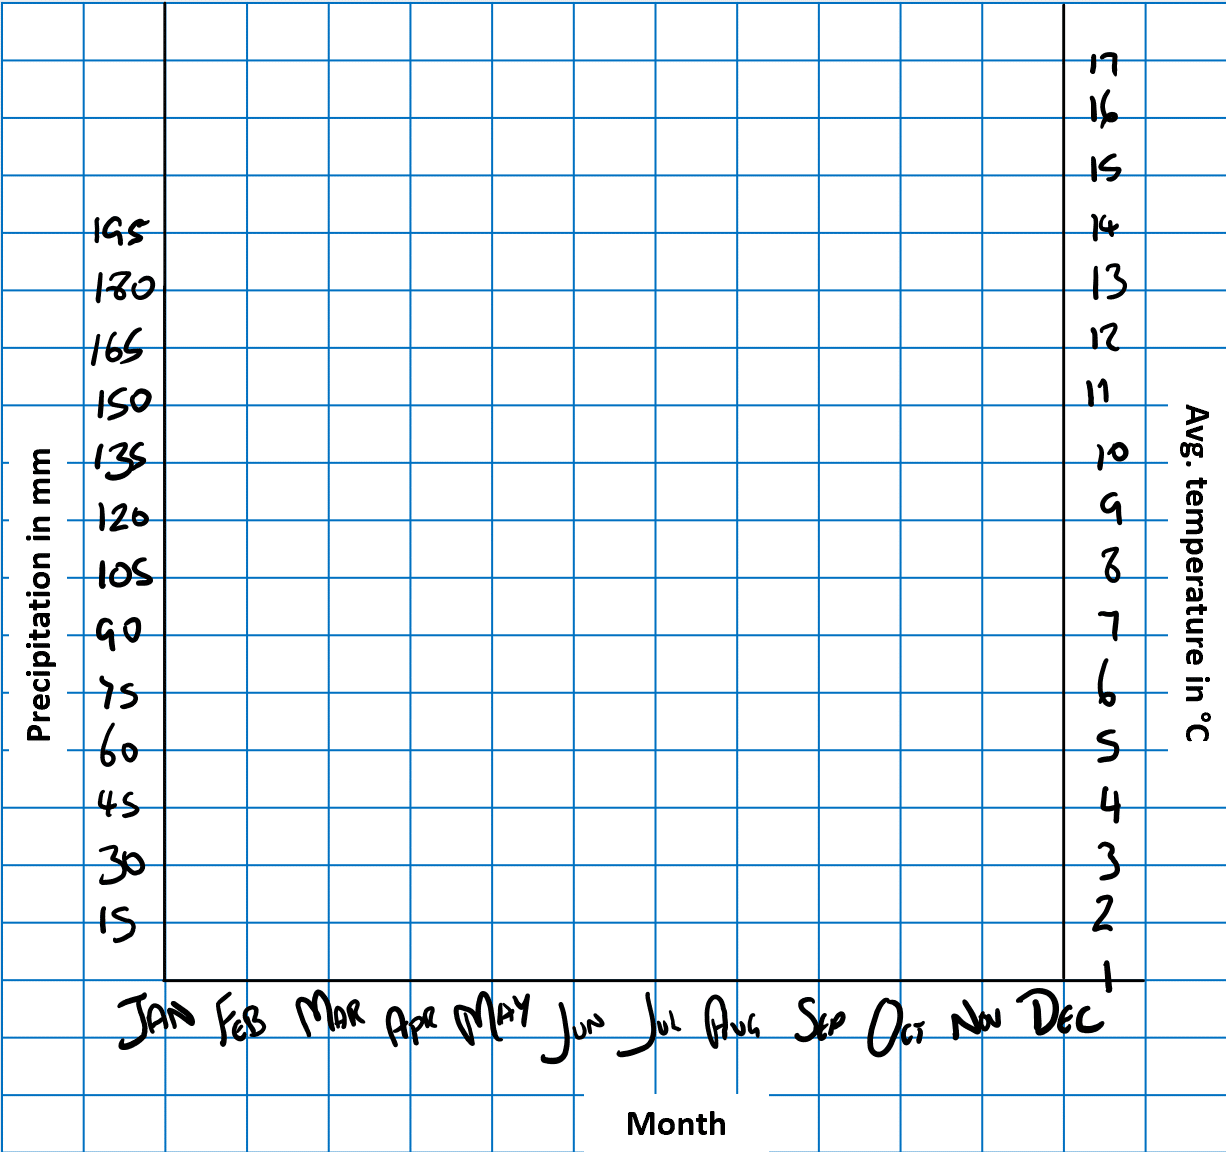 17
16
15
195 14
180 13
165 12
150 11
135 10
120 9
105 8
90 7
75 6
60 5
45 4
30 3
15 2
1
Precipitation in mm
Avg. temperature in °C
JAN FEB MAR APR MAY JUN JUL AUG SEP OCT NOV DEC
Month